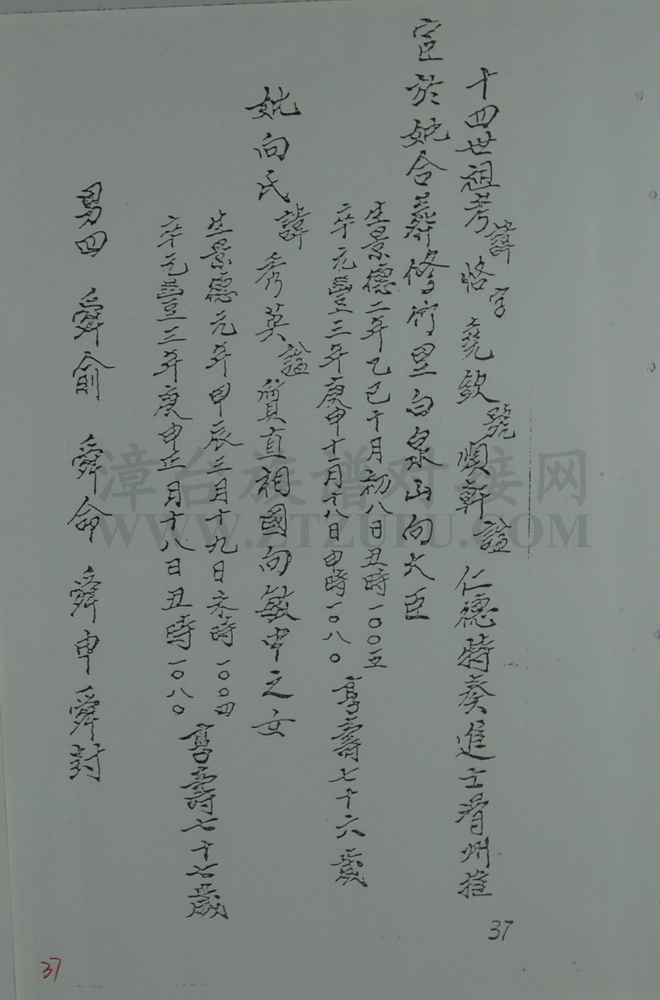 十四世祖考諱恪字堯欽號順軒謚仁德特奏進士胥州推
官於妣合葬修竹里白泉山向大臣
生景德二年乙巳十月初八日丑時一〇〇五
卒元豐三年庚申十一月十八日申時一〇八〇
享壽七十六歲
妣向氏諱秀英謚質直相國向敏中之女
生景德元年甲辰三月十九日未時一〇〇四
卒元豐三年庚申正月十八日丑時一〇八〇
享壽七十七歲
男四 舜俞 舜命 舜申 舜封
37
37
漳台族谱对接网
WWW.ZTZUPU.COM